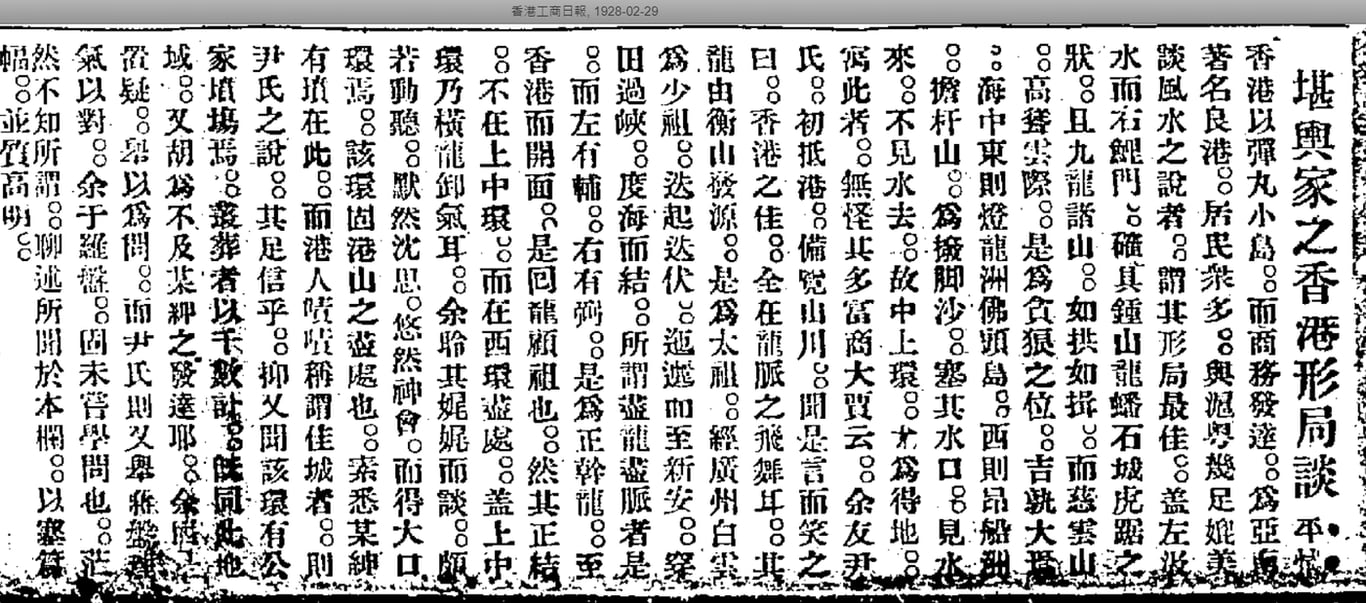 香港工商日報, 1928-02-29
堪輿家之香港形局談
香港以彈丸小島。。而商務發達。。爲亞
著名良港。。居民衆多。。與滬粤幾足媲美
談風水之說者。。謂其形局最佳。。盖左汲
水而右鯉門。。確其鍾山龍蟠石城虎踞之
狀。。且九龍諸山。。如拱如揖。。而慈雲山
。。高聳雲際。。是爲貪狼之位。。吉孰大焉
。。海中東則燈龍洲佛頭島。。西則昂船洲
。。擔杆山。。爲撥脚沙。。塞其水口。。見水
來。。不見水去。。故中上環。。尤爲得地。。
寓此者。。無怪其多富商大賈云。。余友尹
氏。。初抵港。。備覽山川。。聞是言而笑之
曰。。香港之佳。。全在龍脈之飛舞耳。。其
龍由衡山發源。。是爲太祖。。經廣州白雲
爲少祖。。迭起迭伏。。迤邐而至新安。。穿
田過峽。。度海而結。。所謂盡龍盡脈者是
。。而左有輔。。右有弼。。是爲正幹龍。。至
香港而開面。。是回龍顧祖也。。然其正結
。。不在上中環。。而在西環盡處。。盖上中
環乃橫龍卸氣耳。。余聆其娓娓而談。。頗
若動聽。。默然沈思。。悠然神會。。而得大口
環焉。。該環固港山之盡處也。。素悉某紳
有墳在此。。而港人嘖嘖稱謂佳城者。。則
尹氏之說。。其足信乎。。抑又聞該環有公
家墳塲焉。。叢葬者以千數計。。旣同此地
域。。又胡爲不及某紳之發達耶。。余
置疑。。舉以爲問。。而尹氏則又舉
氣以對。。余于羅盤。。固未嘗學問也。。茫
然不知所謂。。聊述所聞於本欄。。以塞篇
幅。。並質高明。。